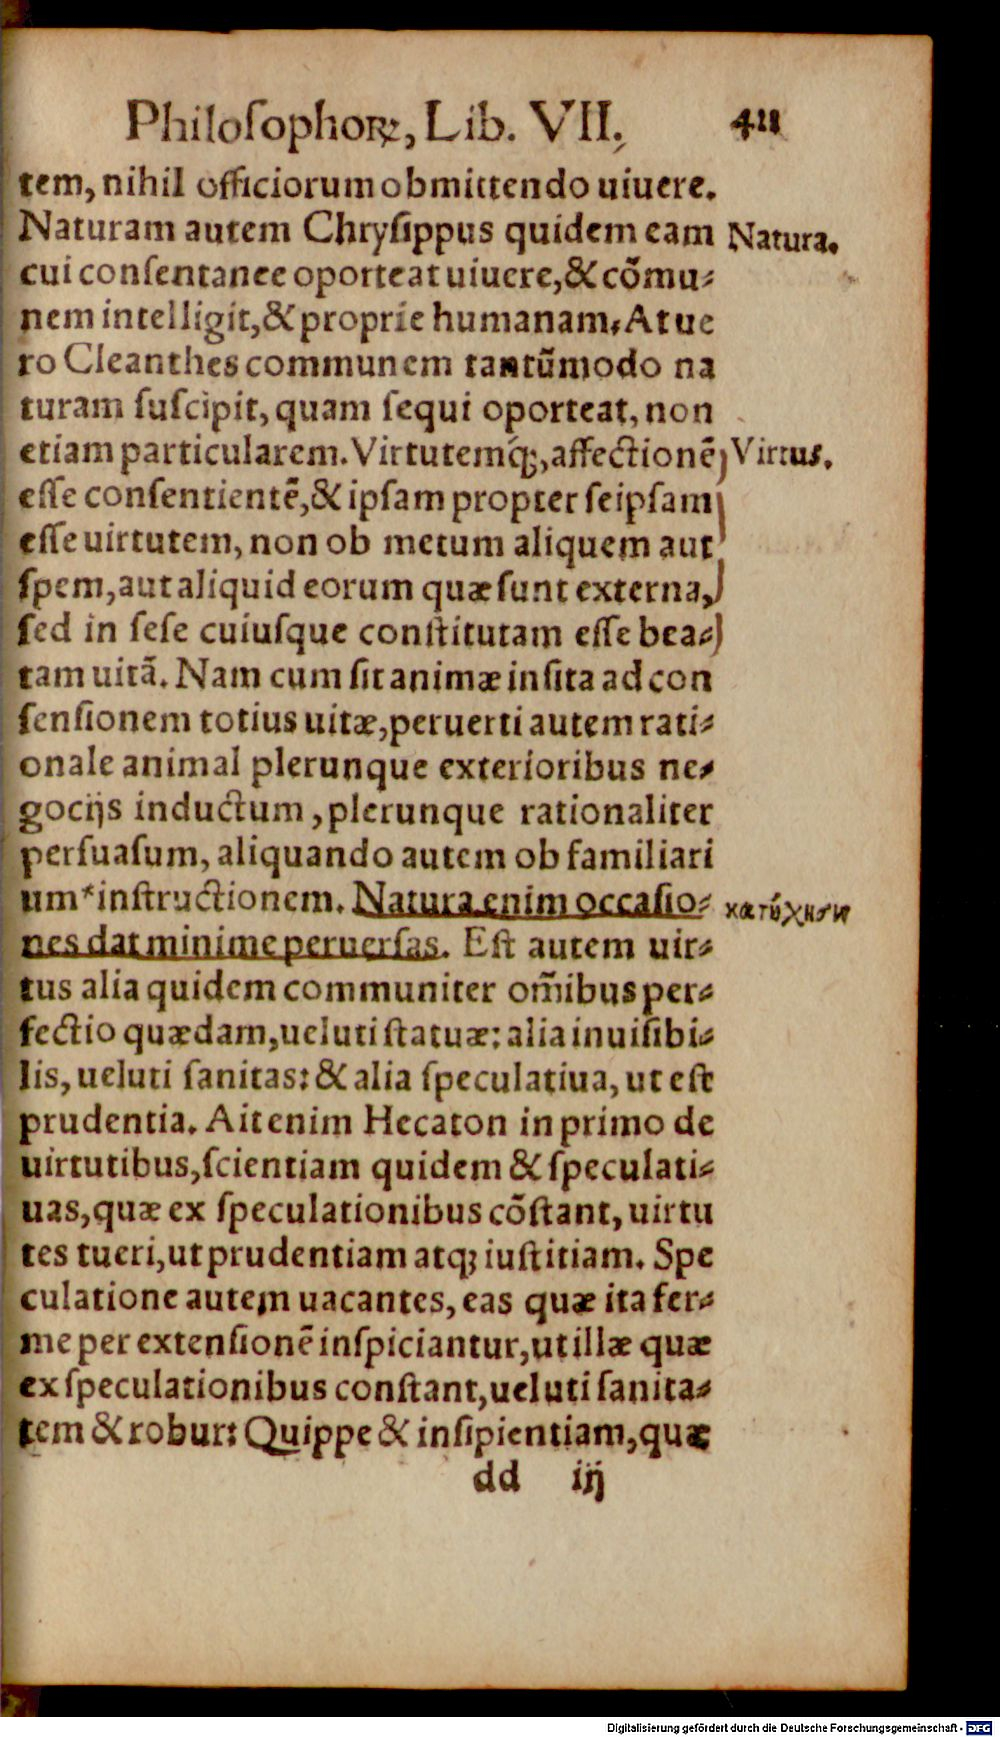 Philosophoꝝ, Lib. VII. 421
tem, nihil officiorum obmittendo uiuere.
Naturam autem Chrysippus quidem eam Natura.
cui consentanee oporteat uiuere, & cõmu-
nem intelligit, & proprie humanam. At ue
ro Cleanthes communem tantũmodo na
turam suscipit, quam sequi oporteat, non
etiam particularem. Virtutemq́;, affectionẽ Virtus.
esse consentientẽ, & ipsam propter seipsam
esse uirtutem, non ob metum aliquem aut
spem, aut aliquid eorum quæ sunt externa,
sed in sese cuiusque constitutam esse bea-
tam uitã. Nam cum sit animæ insita ad con
sensionem totius uitæ, peruerti autem rati-
onale animal plerunque exterioribus ne-
gocijs inductum, plerunque rationaliter
persuasum, aliquando autem ob familiari
um * instructionem. Natura enim occasio-
nes dat minime peruersas. Est autem uir-
tus alia quidem communiter om̃ibus per-
fectio quædam, ueluti statuæ: alia inuisibi-
lis, ueluti sanitas: & alia speculatiua, ut est
prudentia. Ait enim Hecaton in primo de
uirtutibus, scientiam quidem & speculati-
uas, quæ ex speculationibus cõstant, uirtu
tes tueri, ut prudentiam atq; iustitiam. Spe
culatione autem uacantes, eas quæ ita fer-
me per extensionẽ inspiciantur, ut illæ quæ
ex speculationibus constant, ueluti sanita-
tem & robur: Quippe & insipientiam, quæ
dd iij
Digitalisierung gefördert durch die Deutsche Forschungsgemeinschaft - DFG